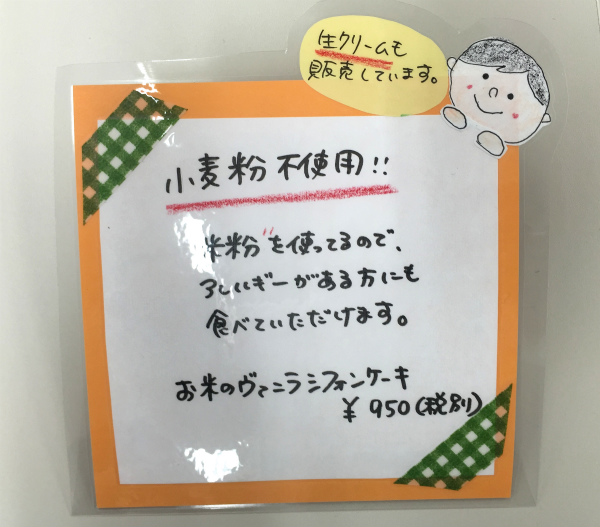 生クリームも
販売しています。
小麦粉不使用!!
米粉"を使ってるので、
アレルギーがある方にも
食べていただけます。
お米のヴァニラシフォンケーキ
¥950(税別)